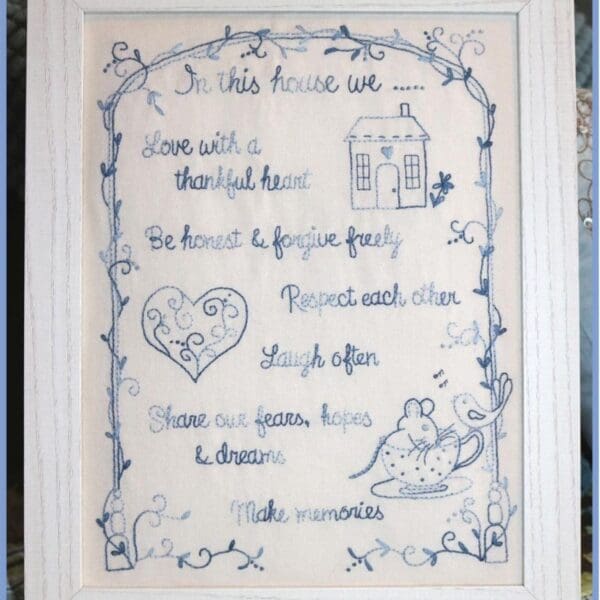 In this house we .....
Love with a
thankful heart
Be honest & forgive freely
Respect each other
Laugh often
Share our fears, hopes
& dreams
Make memories